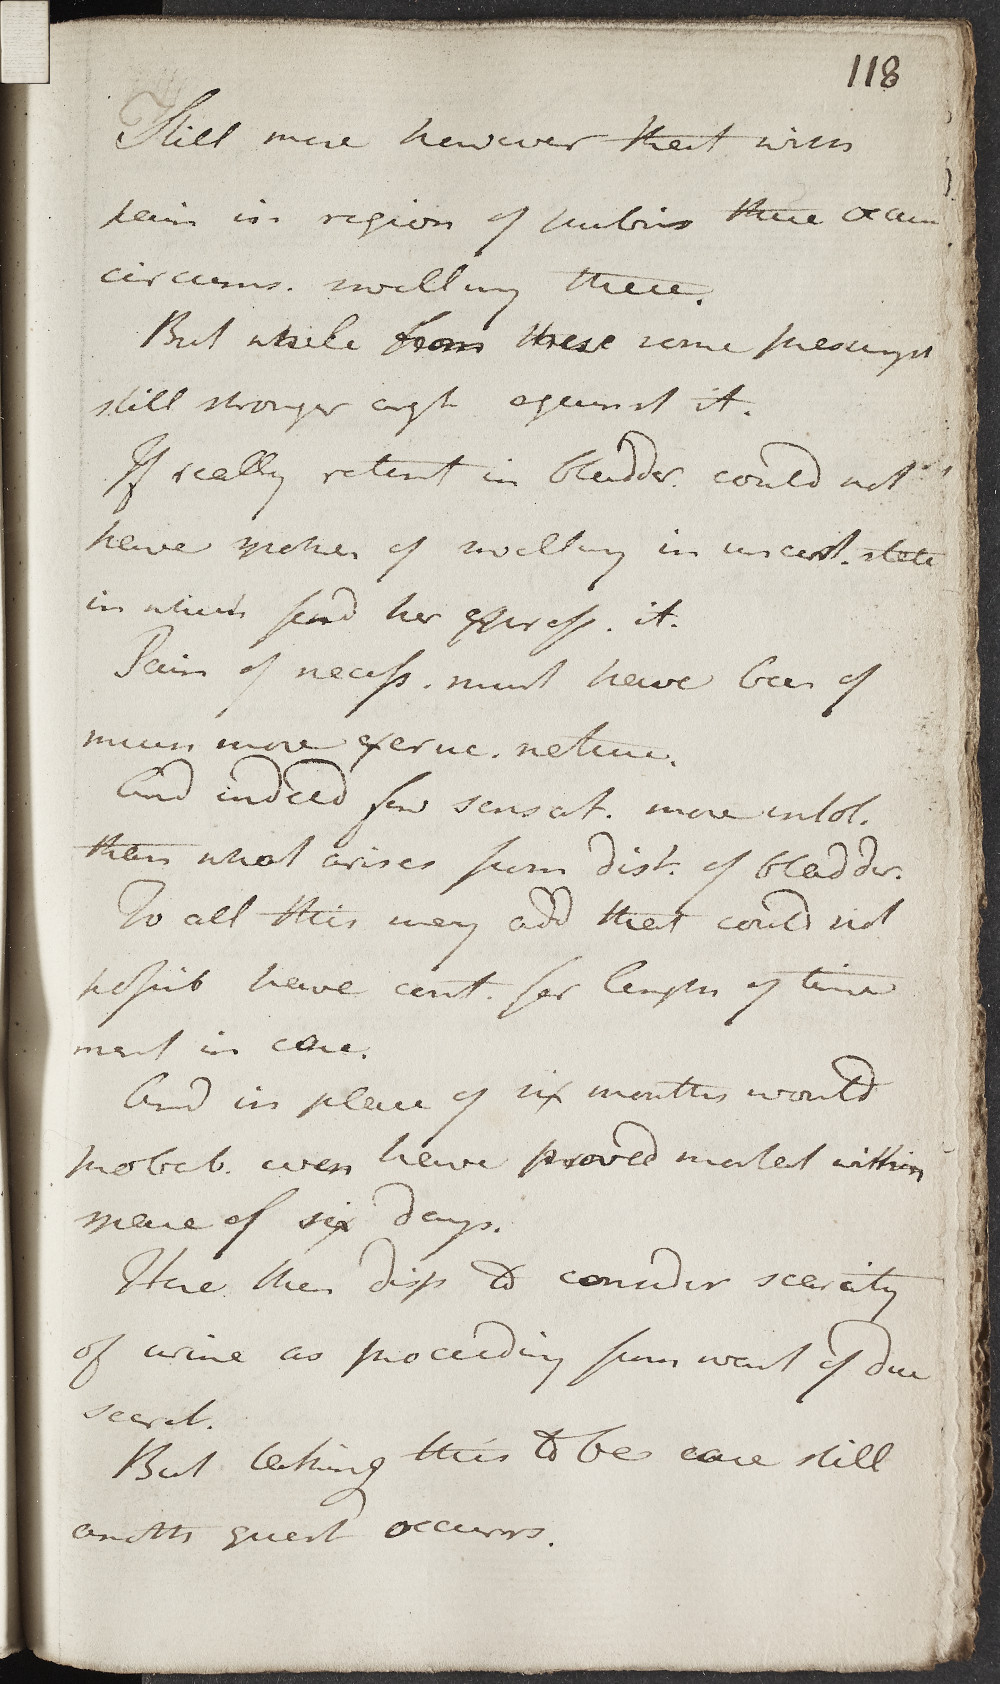 118
Still more however that with
pain in region of pubis there occur
circums. swelling there.
But while from these some presumpt
still stronger argts against it.
If really retent in bladder. could not
have spoken of swelling in uncert. state
in which find her express. it.
Pain of necess. must have been of
much more excruc. nature.
And indeed few sensat. more intol.
than what arises from dist. of bladder.
To all this may add that could not
possib have cont. for length of time
ment in case.
And in place of six months would
probab. even have proved mortal within
space of six days.
Here then disp to consider scarcity
of urine as proceeding from want of due
secret.
But taking this to be case still
anoth quest occurrs.